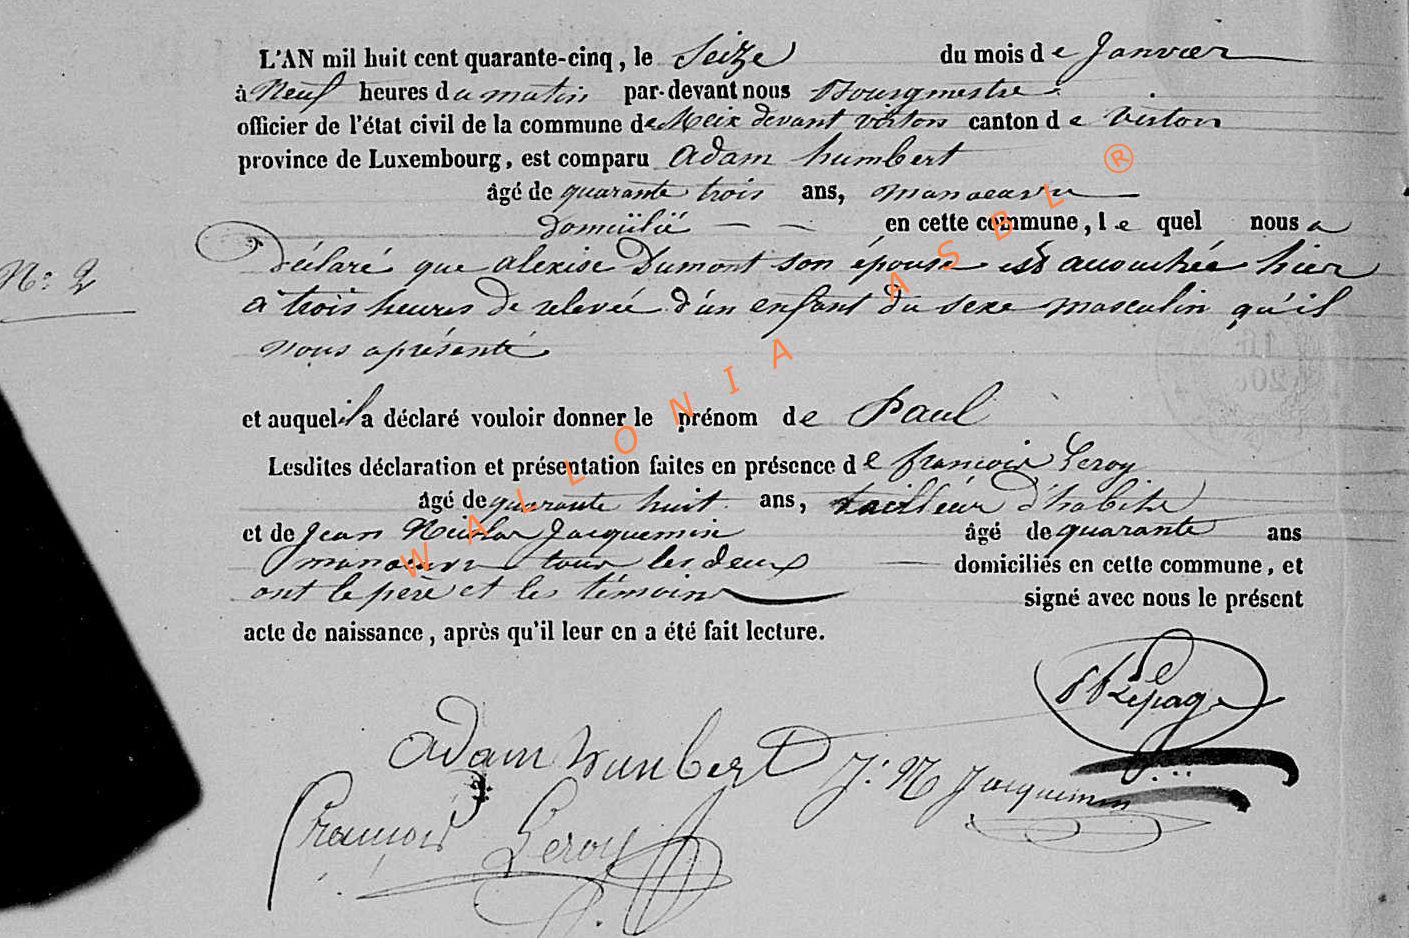 L'AN mil huit cent quarante-cinq, le Seize du mois de Janvier
à Neuf heures du matin par-devant nous Bourgmestre
officier de l'état civil de la commune de Meix devant virton canton de Virton
province de Luxembourg, est comparu Adam humbert
âgé de quarante trois ans, manoeuvre
domicilié en cette commune, lequel nous a
N: 2
déclaré que alexise Dumont son épouse est accouchée hier
à trois heures de relevée d'un enfant du sexe masculin qu'il
nous a présenté
et auquel il a déclaré vouloir donner le prénom de Paul
Lesdites déclaration et présentation faites en présence de francois Leroy
âgé de quarante huit ans, tailleur d'habits
et de Jean Nicolas Jacquemin âgé de quarante ans
manoeuvre tous les deux domiciliés en cette commune, et
ont le père et les témoins signé avec nous le présent
acte de naissance, après qu'il leur en a été fait lecture.
Lepage
Adam humbert J. N Jacquemin
François Leroy
WALLONIA ASBL ®